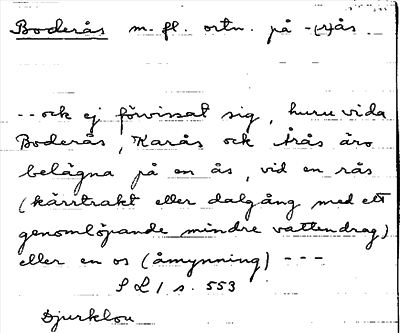 Boderås m. fl. ortn. på -(r)ås
-- ock ej förvissat sig, huru vida
Boderås, Karås ock Årås äro
belägna på en ås, vid en rås
(kärrtrakt eller dalgång med ett
genomlöpande mindre vattendrag)
eller en os (åmynning) ---
S L 1 s. 553
Djurklou